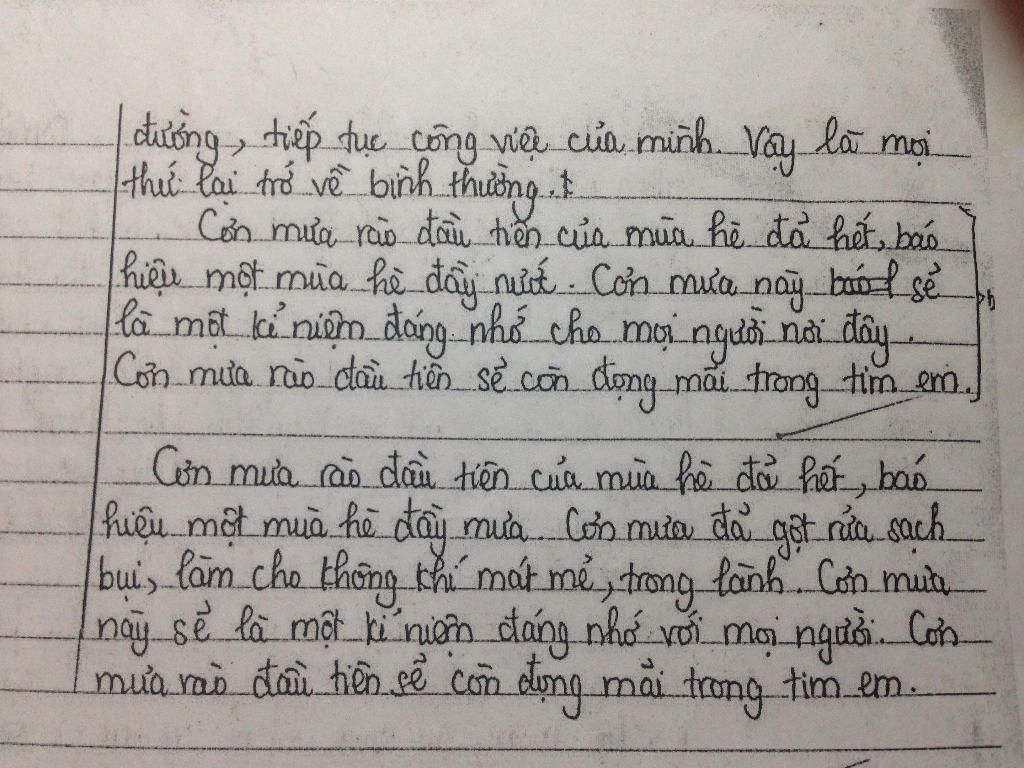 đường, tiếp tục công việc của mình. Vậy là mọi
thứ lại trở về bình thường.
Cơn mưa rào đầu tiên của mùa hè đả hết, báo
hiệu một mùa hè đầy nước. Cơn mưa này sẻ
là một kỉ niệm đáng nhớ cho mọi người nơi đây.
Cơn mưa rào đầu tiên sẻ còn đọng mãi trong tim em.
Cơn mưa rào đầu tiên của mùa hè đả hết, báo
hiệu một mùa hè đầy mưa. Cơn mưa đả gột rửa sạch
bụi, làm cho không khí mát mẻ, trong lành. Cơn mưa
này sẻ là một kỉ niệm đáng nhớ với mọi người. Cơn
mưa rào đầu tiên sẻ còn đọng mải trong tim em.